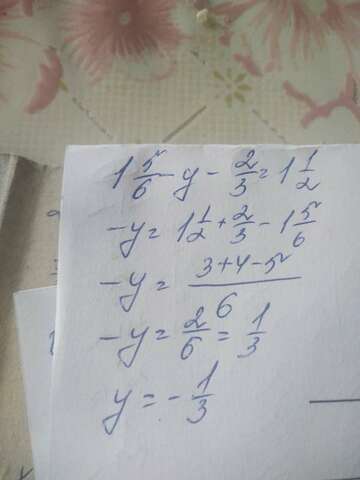 1 5/6 - y - 2/3 = 1 1/2
-y = 1 1/2 + 2/3 - 1 5/6
-y = (3+4-5)/6
-y = 2/6 = 1/3
y = - 1/3